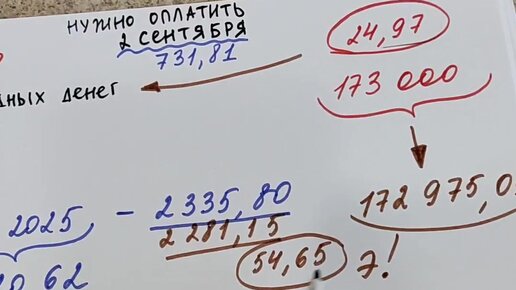 НУЖНО ОПЛАТИТЬ
2 СЕНТЯБРЯ
731,81
24,97
173 000
ДЕНЕГ
172 975,0
2025 - 2335,80
2 281,15
54,65
!
62